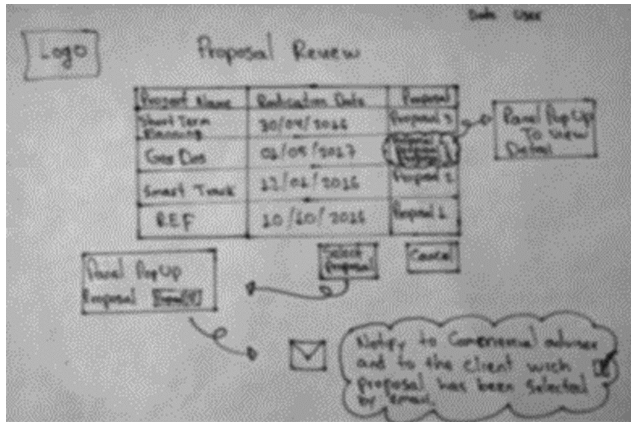 Date User
Logo
Proposal Review
Project Name Radication Date Proposal
Short Term
Planning 30/04/2016 Proposal 3
01/05/2017
Smart Track 12/01/2016 Proposal 2
REF 10/10/2016 Proposal 1
Panel PopUp
To view
Detail
Select
Proposal
Cancel
Panel PopUp
Proposal
Notify to Comercial adviser
and to the client wich
proposal has been selected
by email.